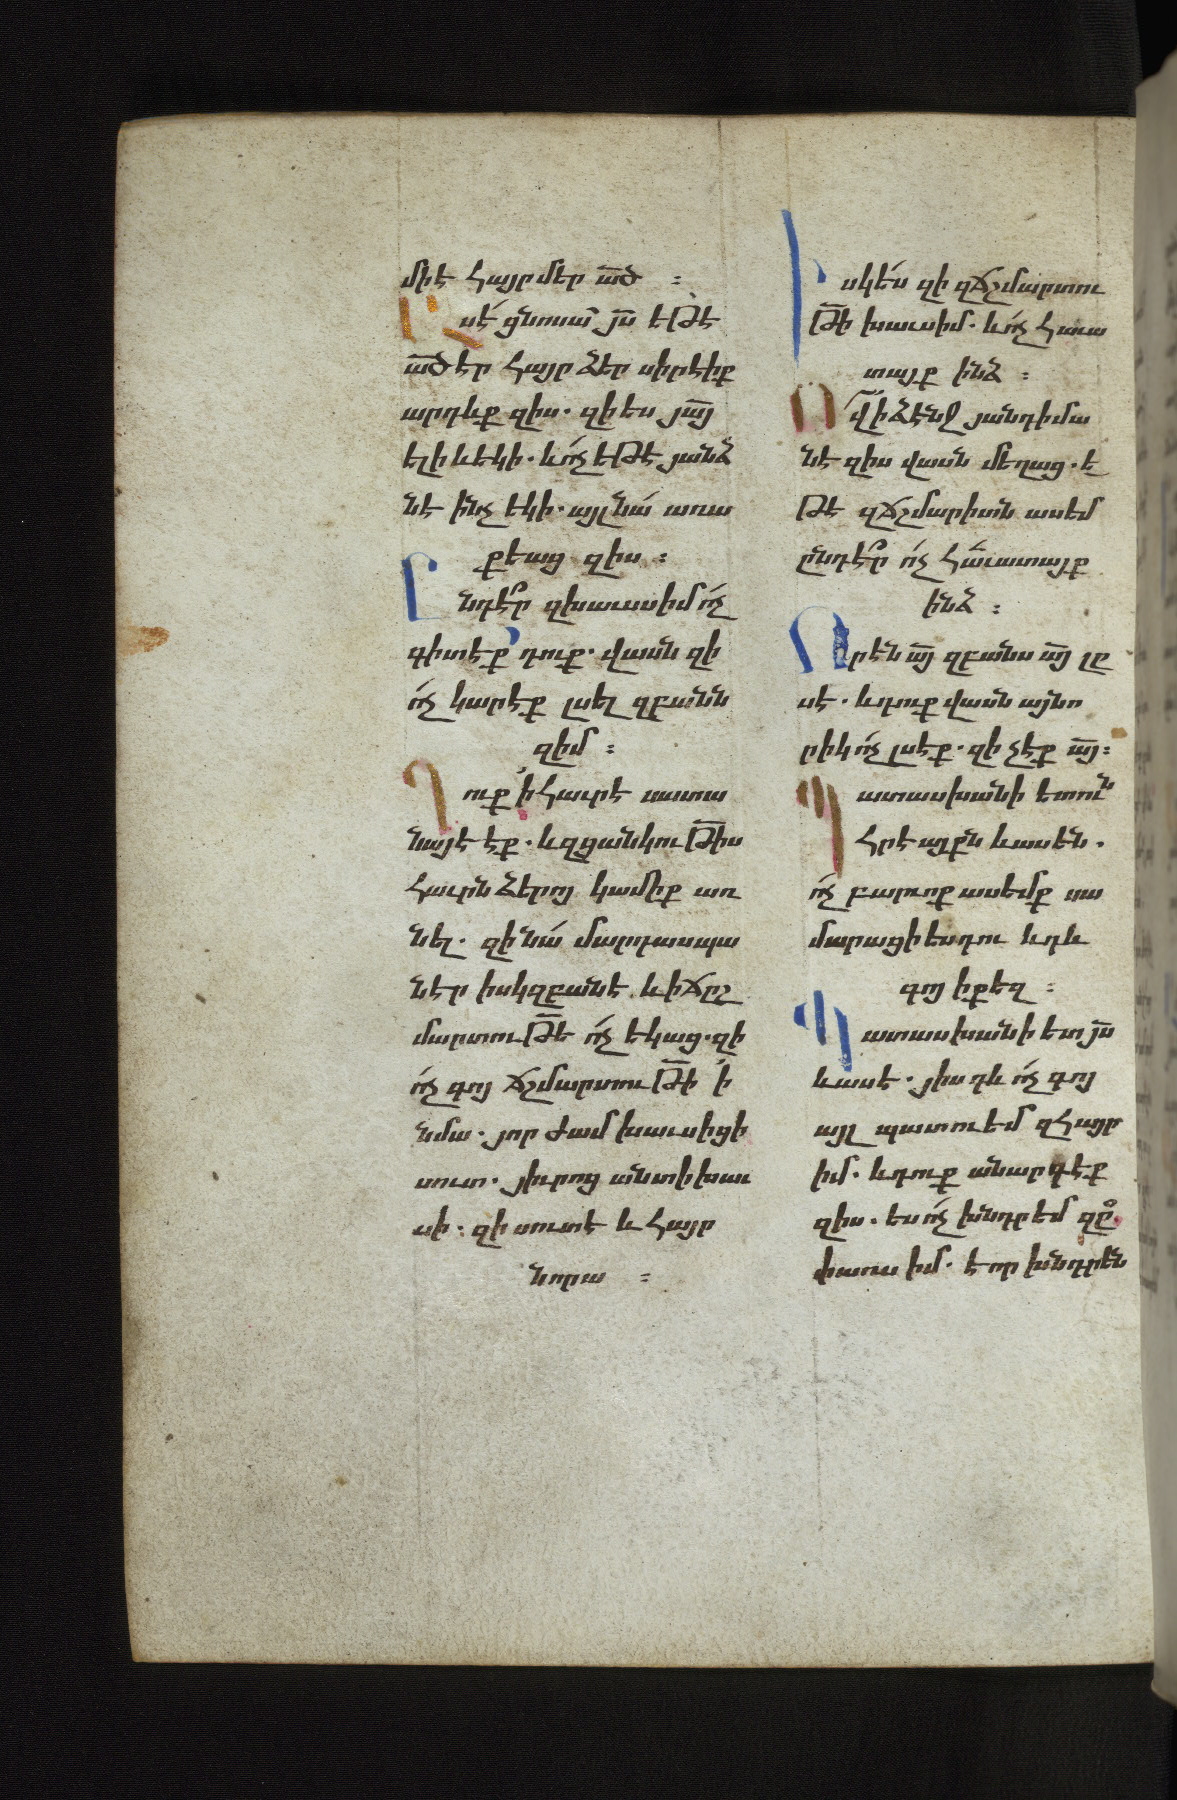 մի է հայր մեր ա՟ծ ։
Ասէ́ ցնոսա՟ յ՟ս եթե՛
ա՟ծ էր հայր ձեր սիրէիք
արդևք զիս. զի ես յա՟յ
ելի և եկի. և ո՛չ եթէ յանձ
նէ ինչ եկի. այլ նա́ առա
քեաց զիս ։
Ընդէ՞ր զխաւսսիմ ո՛չ
գիտէք դուք. վասն զի
ո՛չ կարէք լսել զբանն
զիմ ։
Դուք ՛ի հաւրէ սատա
նայէ էք. և զցանկութ՟իս
հաւրն ձերոյ կամիք առ
նել. զի նա́ մարդասպա
նէր իսկզբանէ. և ի ճըշ
մարտութ՟ե ո՛չ եկաց. զի
ո՛չ գոյ ճշմարտութ՟ի ՛ի
նմա. յորժամ խաւսիցի
սուտ. յիւրոց անտի խաւ
սի. զի սուտ է և հայր
նորա ։
Իսկ ե́ս զի զճշմարտու
թ՟ի խաւսիմ. և ո՛չ հաւա
տայք ինձ ։
Ո՞վ ի ձէնջ յանդիմա
նէ զիս վասն մեղաց. ե
թէ զճշմարիտն ասեմ
ընդէ՞ր ո՛չ հաւատայք
ինձ ։
Որ էն ա՟յ զբանս ա՟յ լը
սէ. և դուք վասն այնո
րիկ ո՛չ լսէք. զի չէք ա՟յ։
Պատասխանի ետուն
հրեայքն և ասեն.
ո՛չ բարւոք ասեմք սա
մարացի ես դու և դև
գոյ ի քեզ ։
Պատասխանի ետ յ՟ս
և ասէ. յիս դև ո՛չ գոյ
այլ պատուեմ զհայր
իմ. և դուք անարգէք
զիս. ես ո՛չ խնդրեմ զը
փառս իմ. է որ խնդրէն